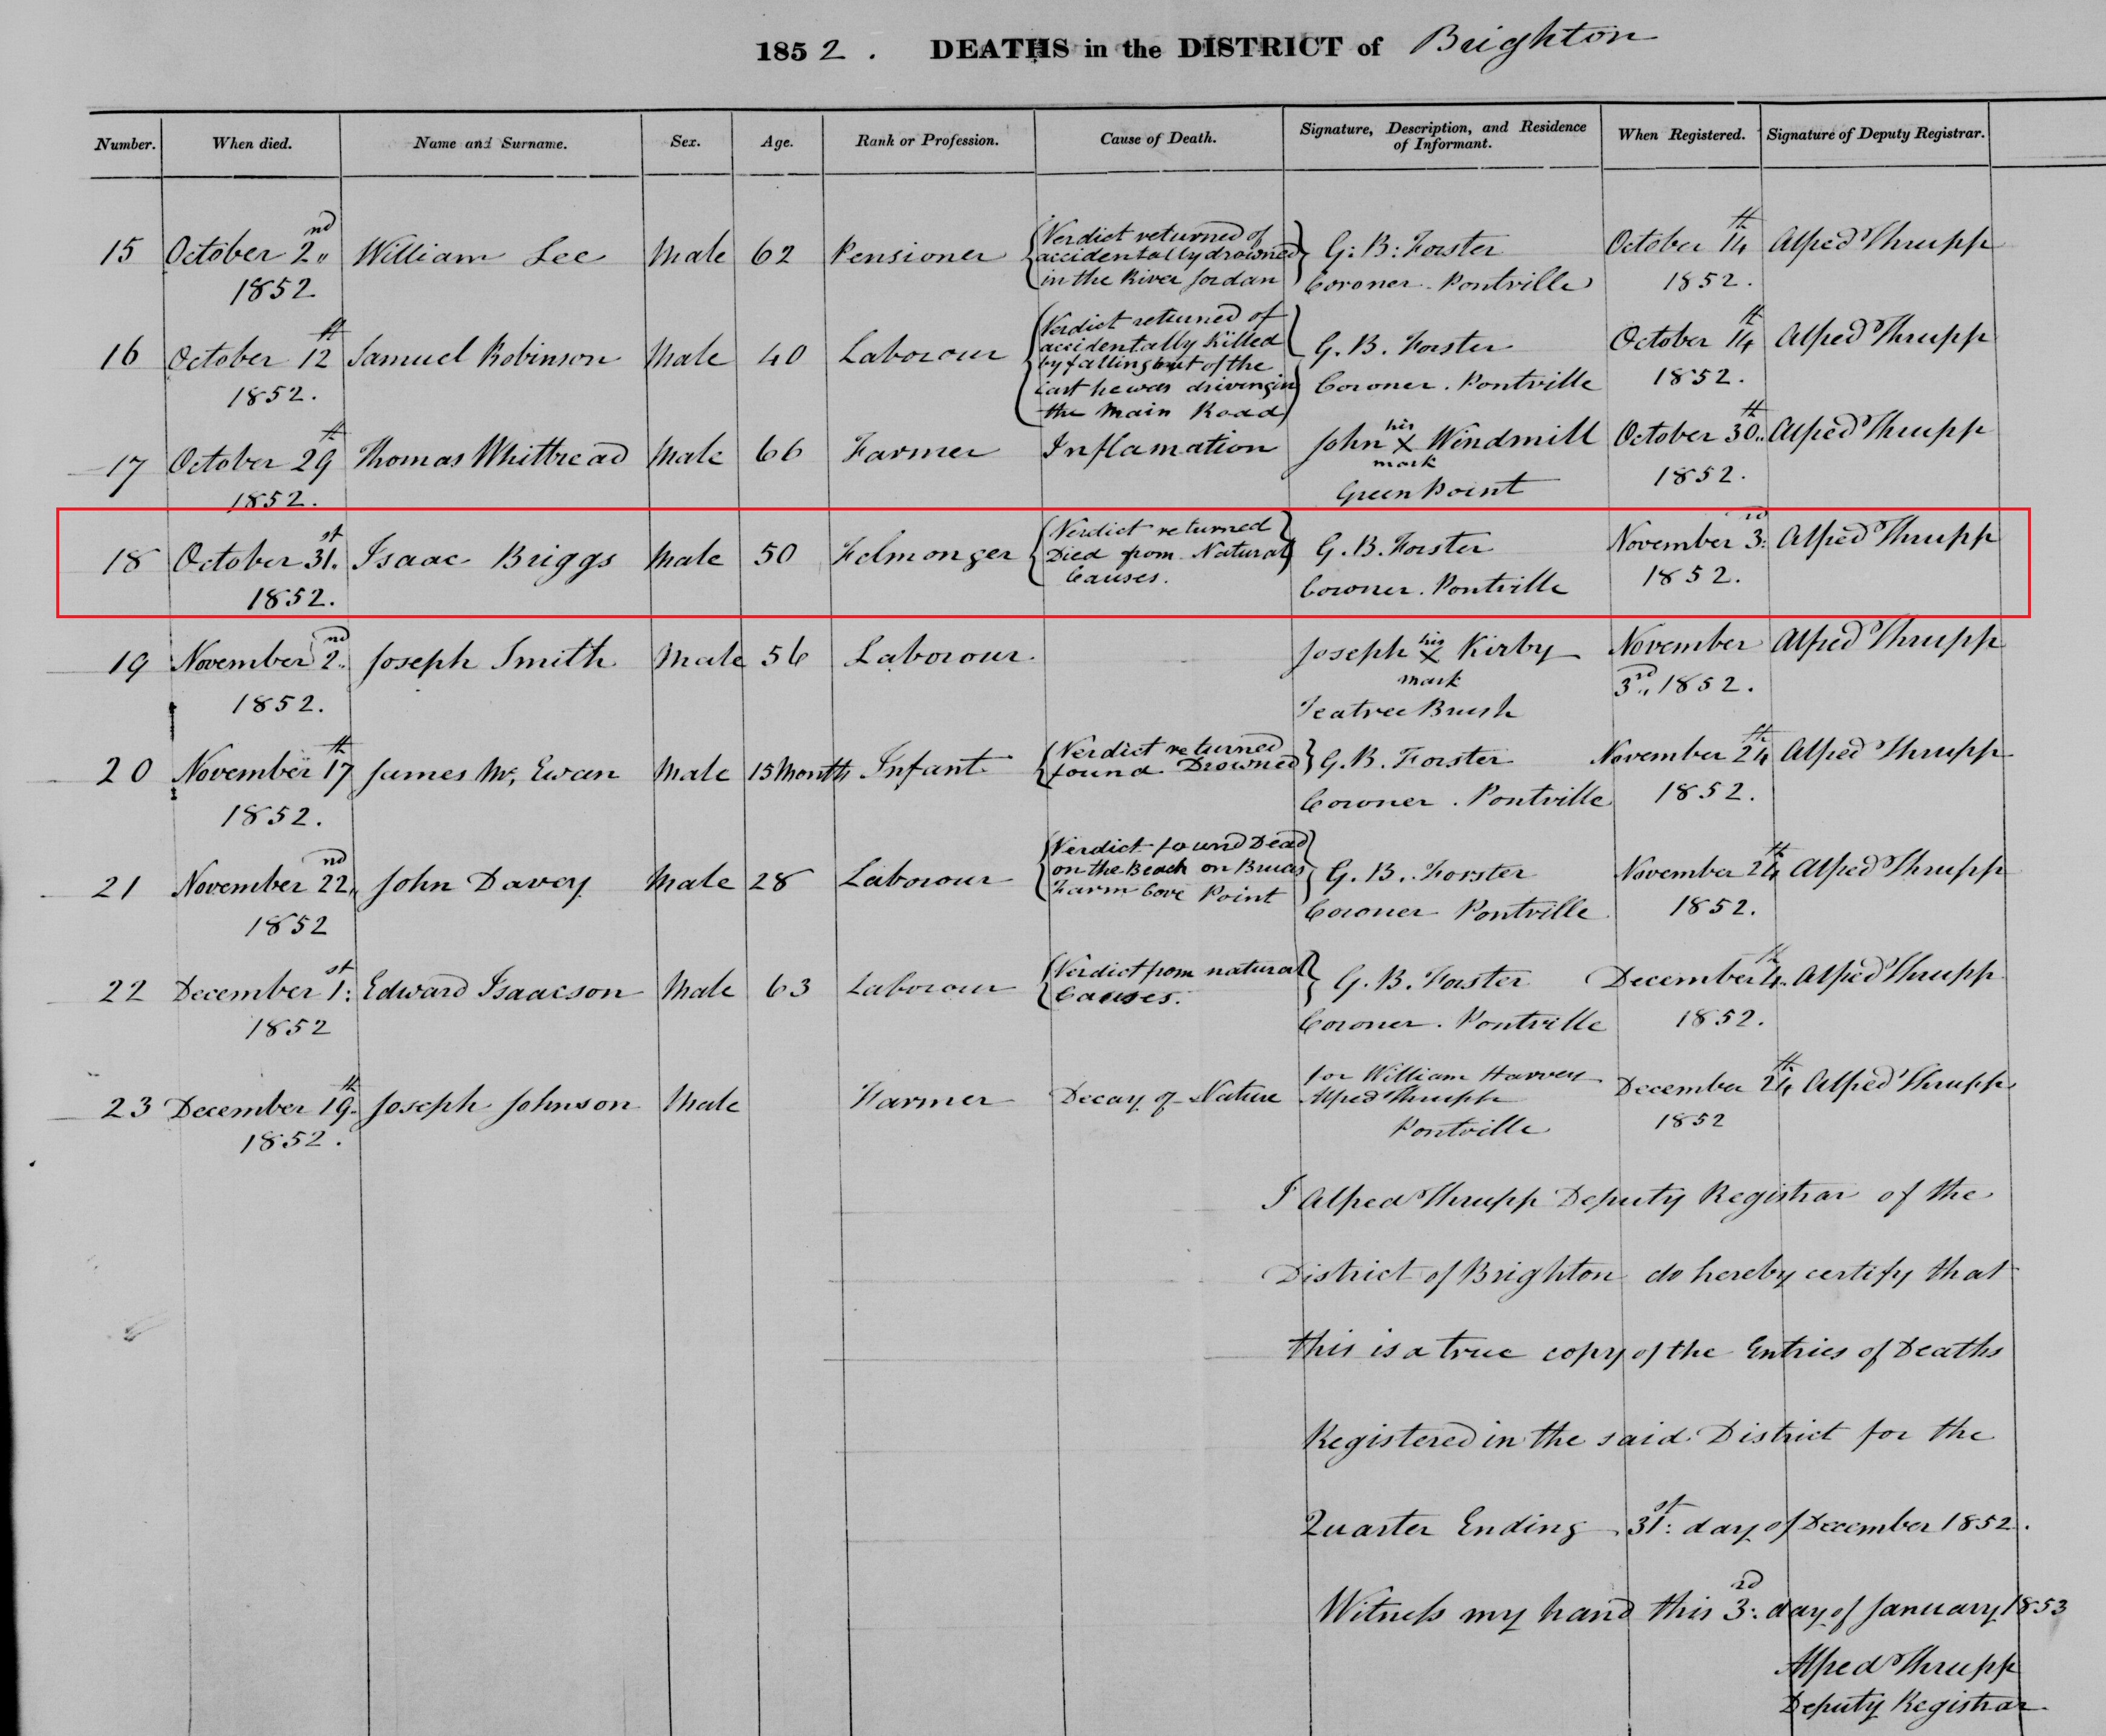 1852. DEATHS in the DISTRICT of Brighton
Number. When died. Name and Surname. Sex. Age. Rank or Profession. Cause of Death. Signature, Description, and Residence of Informant. When Registered. Signature of Deputy Registrar.
15 October 2nd 1852 William Lee Male 62 Pensioner Verdict returned of accidentally drowned in the River Jordan G: B: Forster Coroner. Pontville October 14th 1852. Alfred Thrupp
16 October 12th 1852. Samuel Robinson Male 40 Laborour Verdict returned of accidentally killed by falling out of the cart he was driving in the Main Road G. B. Forster Coroner. Pontville October 14th 1852. Alfred Thrupp
17 October 29th 1852. Thomas Whitbread Male 66 Farmer Inflamation John his X mark Windmill Green Point October 30th 1852. Alfred Thrupp
18 October 31st 1852. Isaac Briggs Male 50 Felmonger Verdict returned Died from Natural Causes. G. B. Forster Coroner. Pontville November 3rd 1852. Alfred Thrupp
19 November 2nd 1852. Joseph Smith Male 56 Laborour. Joseph his X mark Kirby Teatree Brush November 3rd 1852. Alfred Thrupp
20 November 17th 1852. James Mc, Ewan Male 15 Month Infant Verdict returned found Drowned G. B. Forster Coroner. Pontville November 24th 1852. Alfred Thrupp
21 November 22nd 1852 John Davey Male 28 Laborour Verdict found Dead on the Beach on Bruces Farm Cove Point G. B. Forster Coroner Pontville November 24th 1852. Alfred Thrupp
22 December 1st 1852 Edward Isaacson Male 63 Laborour Verdict from natural Causes. G. B. Forster Coroner. Pontville December 4th 1852. Alfred Thrupp
23 December 19th 1852. Joseph Johnson Male Farmer Decay of Nature for William Harvey Alfred Thrupp Pontville December 24th 1852 Alfred Thrupp
I Alfred Thrupp Deputy Registrar of the
District of Brighton do hereby certify that
this is a true copy of the Entries of Deaths
Registered in the said District for the
Quarter Ending 31st: day of December 1852.
Witness my hand this 3rd: day of January 1853
Alfred Thrupp
Deputy Registrar